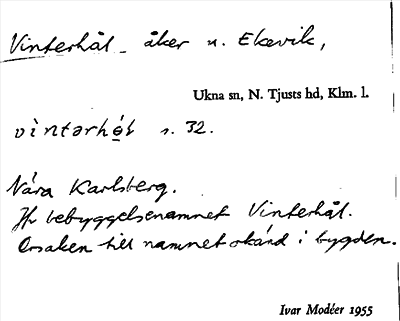 Vinterhål åker u. Ekevik,
Ukna sn, N. Tjusts hd, Klm. l.
vìntərhɵ́l s. 32.
Nära Karlsberg.
Jfr bebyggelsenamnet Vinterhål.
Orsaken till namnet okänd i bygden.
Ivar Modéer 1955